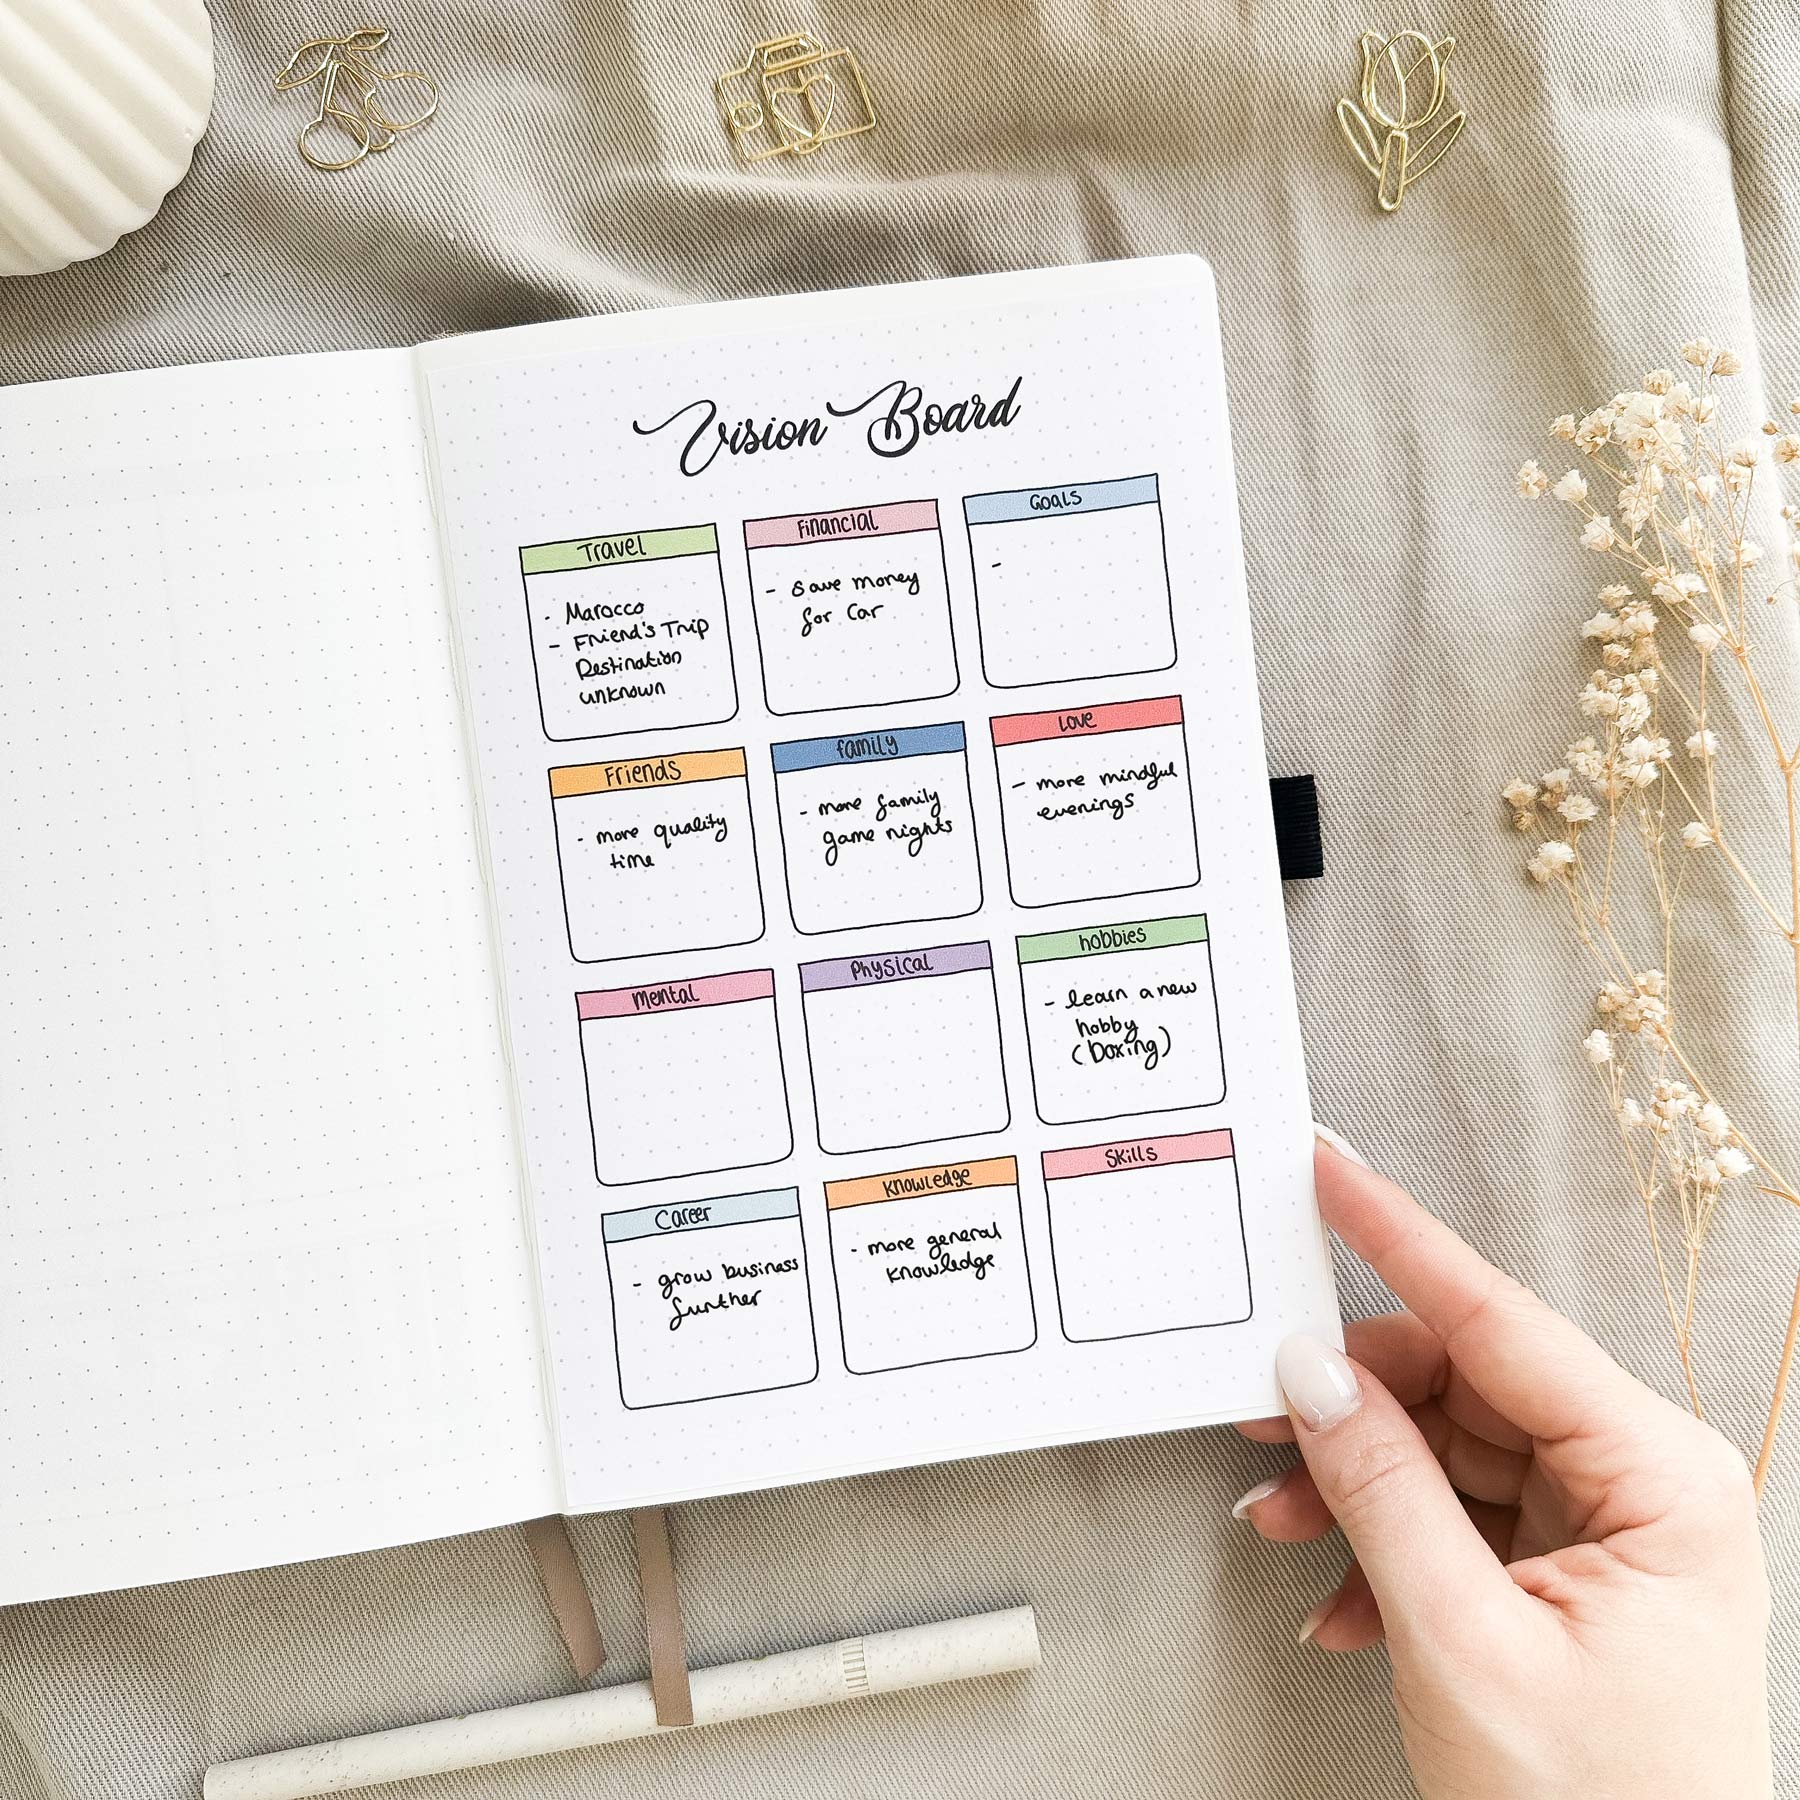 Vision Board
Travel
- Marocco
- Friend's Trip
Destination
unknown
Financial
- Save money
for Car
Goals
-
Friends
- more quality
time
family
- more family
game nights
Love
- more mindful
evenings
Mental
Physical
hobbies
- learn a new
hobby
(Boxing)
Career
- grow business
further
Knowledge
- more general
knowledge
Skills